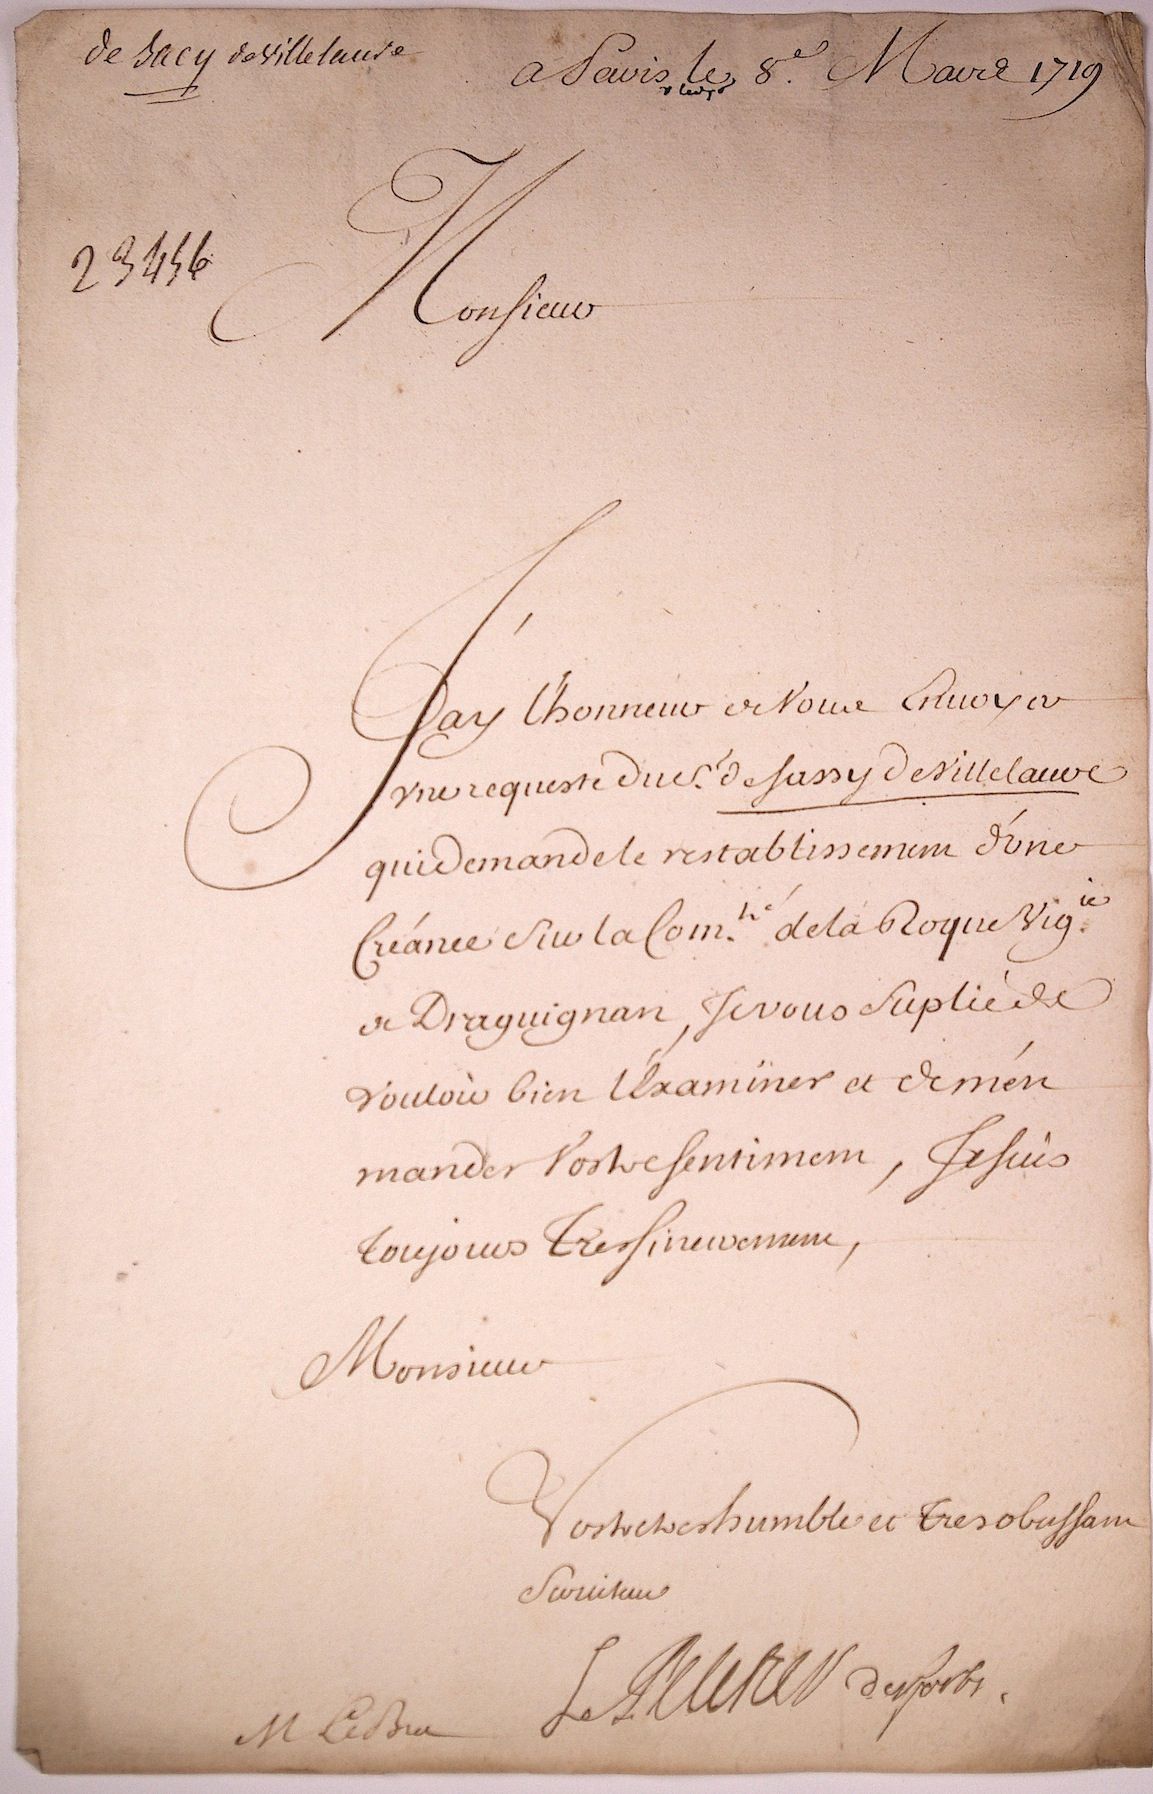 de Sacy de Villelaure
a Paris le 8.e Mars 1719
23456
Monsieur
J'ay l'honneur de Vous Enuoyer
vne requeste du Sr. de Sassy de Villelaure
qui demande le restablissement d'une
Créance sur la Com.té de la Roque Vig.ie
de Draguignan, Je vous suplie de
vouloir bien l'Examiner et de m'en
mander Vostre sentiment, Je suis
toujours tres sincerement,
Monsieur
Vostre tres humble et tres obeissant
Seruiteur
Le Peletier desforts.
M Le Bret